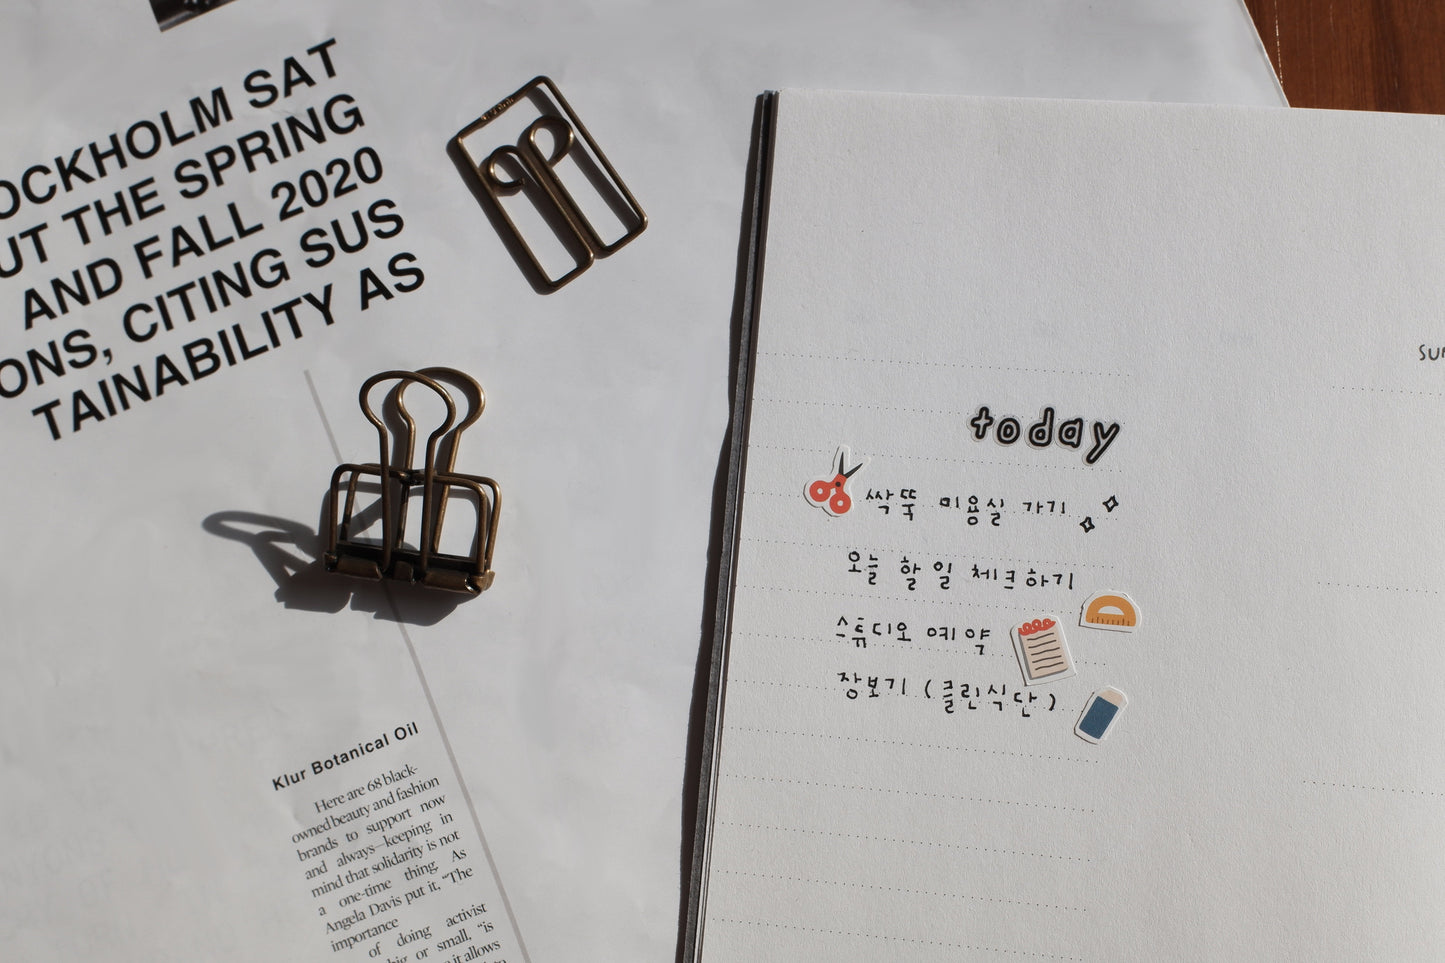 OCKHOLM SAT
UT THE SPRING
AND FALL 2020
ONS, CITING SUS
TAINABILITY AS
Klur Botanical Oil
Here are 68 black-
owned beauty and fashion
brands to support now
and always—keeping in
mind that solidarity is not
a one-time thing. As
Angela Davis put it, “The
importance
of doing activist
big or small, “is
it allows
today
싹뚝 미용실 가기
오늘 할 일 체크하기
스튜디오 예약
장보기 (클린식단)
SUN